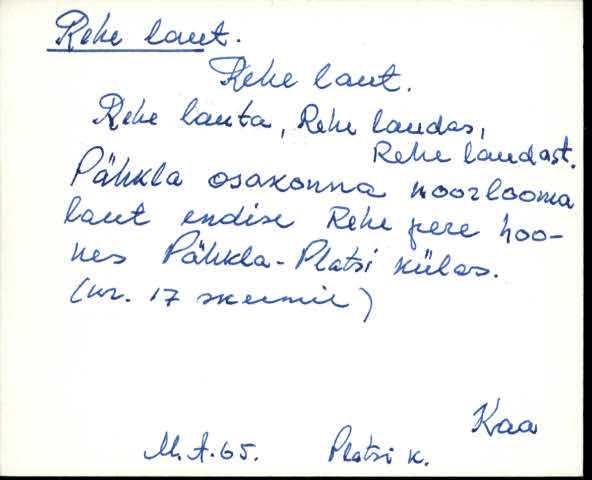 Rehe laut.
Rehe laut.
Rehe lauta, Rehe laudas,
Rehe laudast.
Pähkla osakonna noorlooma
laut endise Rehe pere hoo-
nes Pähkla-Platsi külas.
(nr. 17 skeemil)
Kaa
M.A.65. Platsi k.